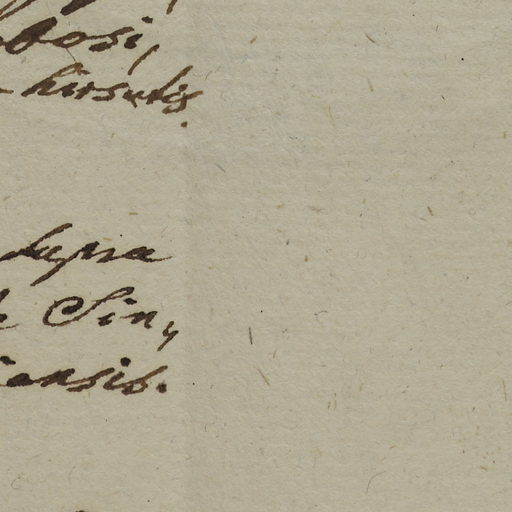 bosi,
hirsutis.
supra
Sin,
ensis.